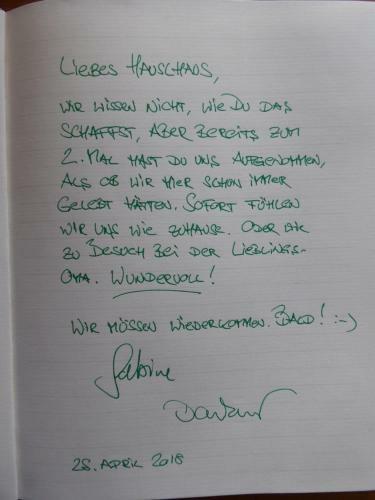 LIEBES HAUSCHAUS,
WIR WISSEN NICHT, WIE DU DAS
SCHAFFST, ABER BEREITS ZUM
2. MAL HAST DU UNS AUFGENOMMEN,
ALS OB WIR HIER SCHON IMMER
GELEBT HÄTTEN. SOFORT FÜHLEN
WIR UNS WIE ZUHAUSE. ODER
ZU BESUCH BEI DER LIEBLINGS-
OMA. WUNDERVOLL!
WIR MÜSSEN WIEDERKOMMEN. BALD! :-)
Sabine
28. APRIL 2018